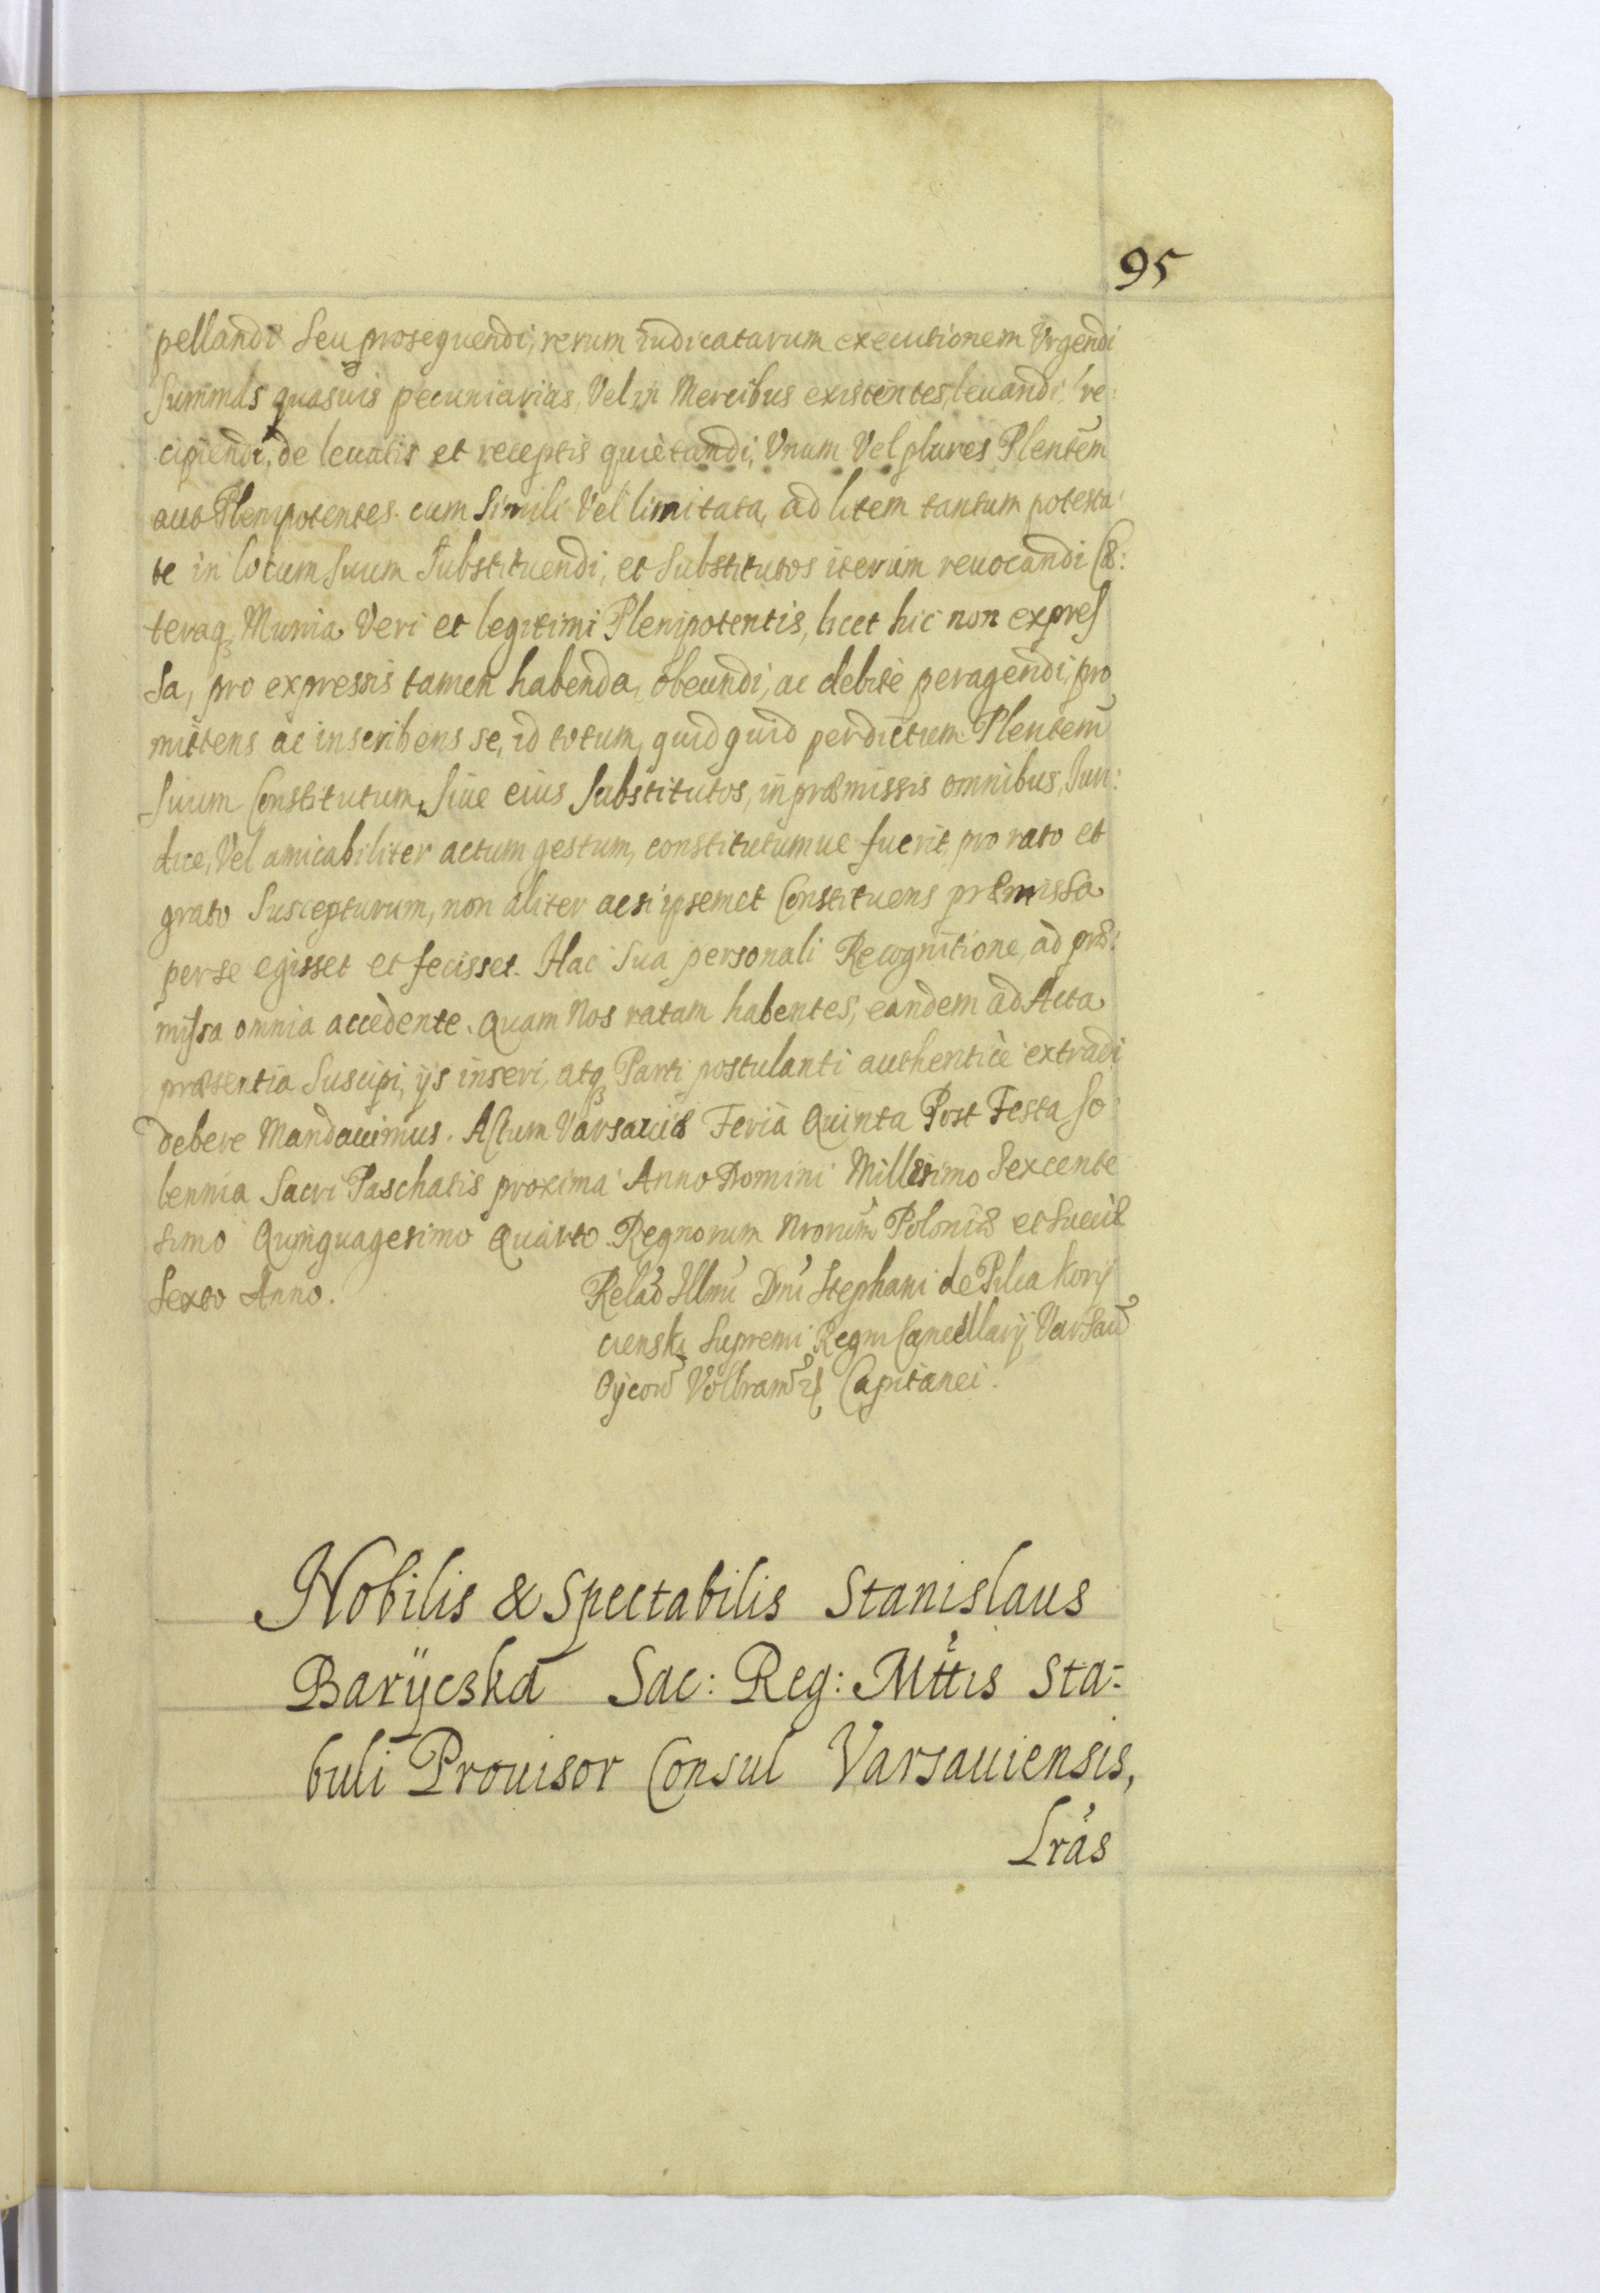 95
pellandi Seu prosequendi, rerum iudicatarum executionem Vrgendi
Summas quasuis pecuniarias, Vel in Mercibus existentes, leuandi, re:
cipiendi, de leuatis et receptis quietandi, Vnum Vel plures Plentem
aut Plenipotentes cum Simili Vel limitata, ad litem tantum potesta:
te in locum Suum Substituendi, et Substitutos iterum reuocandi Cæ:
teraq Munia Veri et legitimi Plenipotentis, licet hic non expres
sa, pro expressis tamen habenda, obeundi, ac debitè peragendi, pro
mittens ac inscribens se, id totum, quidquid perdictum Plentem
Suum Constitutum, Siue eius Substitutos, in præmissis omnibus, Iuri:
dice, Vel amicabiliter actum gestum, constitutumue fuerit, pro rato et
grato Suscepturum, non aliter acsi ipsemet Constituens præmissa
per se egisset et fecisset. Hac Sua personali Recognitione, ad præ:
missa omnia accedente. Quam Nos ratam habentes, eandem ad Acta
præsentia Suscipi, ijs inseri, atq Parti postulanti authenticè extradi
debere Mandauimus. Actum Varsauiæ Feria Quinta Post Festa So
lennia Sacri Paschatis proxima Anno Domini Millesimo Sexcente
simo Quinquagesimo Quarto Regnorum Nrorum Poloniæ et Sueciæ
Sexto Anno.
Relao Illmi Dni Stephani de Pilca Kory
cienski Supremi Regni Cancellarij Varsau
Oycow Volbram Capitanei.
Nobilis & Spectabilis Stanislaus
Barÿcska Sac: Reg: Mttis Sta-
buli Prouisor Consul Varsauiensis,
Lras